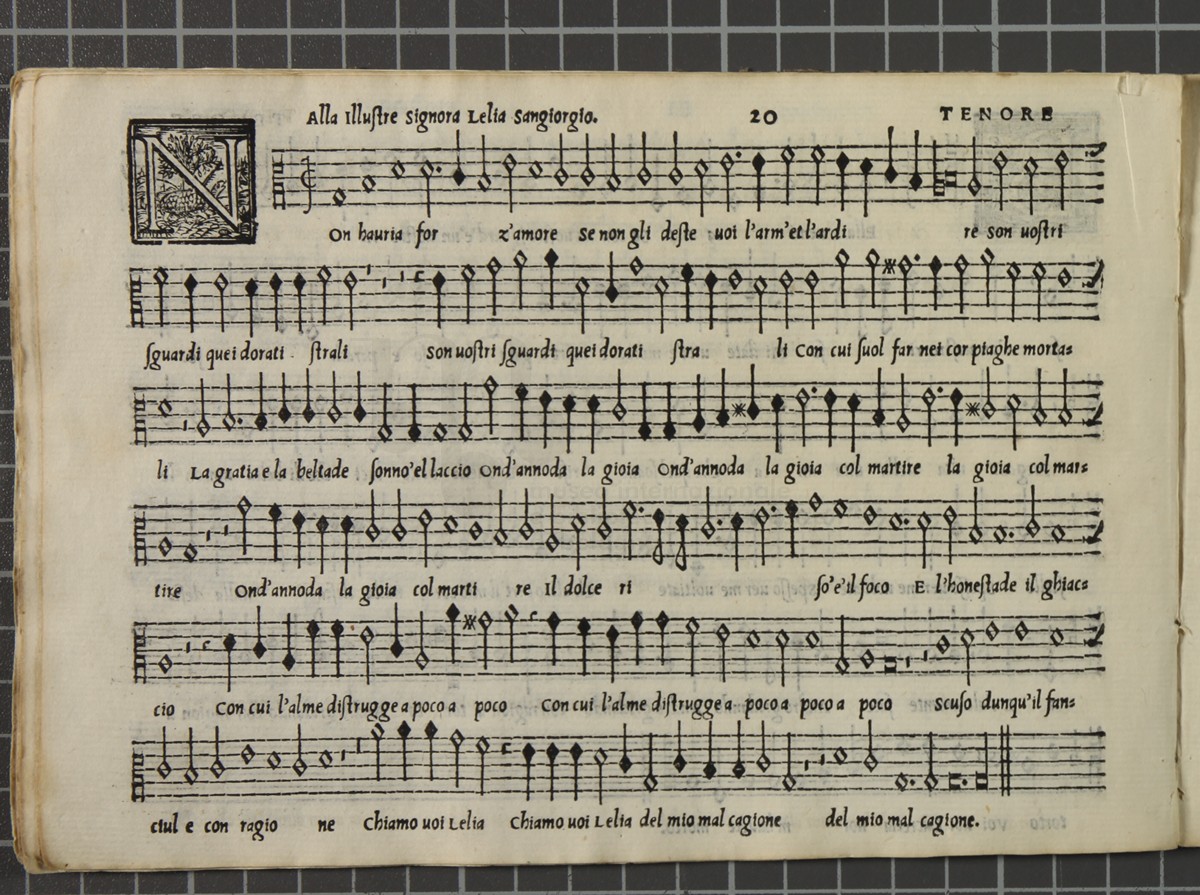 Alla Illuſtre Signora Lelia Sangiorgio. 20 TENORE
NOn hauria for z'amore Se non gli deſte uoi l'arm'et l'ardi re son uoſtri
ſguardi quei dorati ſtrali son uoſtri ſguardi quei dorati ſtra li Con cui ſuol far nei cor piaghe morta=
li La gratia e la beltade ſonno'el laccio Ond'annoda la gioia Ond'annoda la gioia col martire la gioia col mar=
tire Ond'annoda la gioia col marti re Il dolce ri ſo'e'il foco E l'honeſtade il ghiac=
cio Con cui l'alme diſtrugge a poco a poco Con cui l'alme diſtrugge a poco a poco a poco Scuſo dunqu'il fan=
ciul e con ragio ne Chiamo uoi Lelia Chiamo uoi Lelia del mio mal cagione del mio mal cagione.